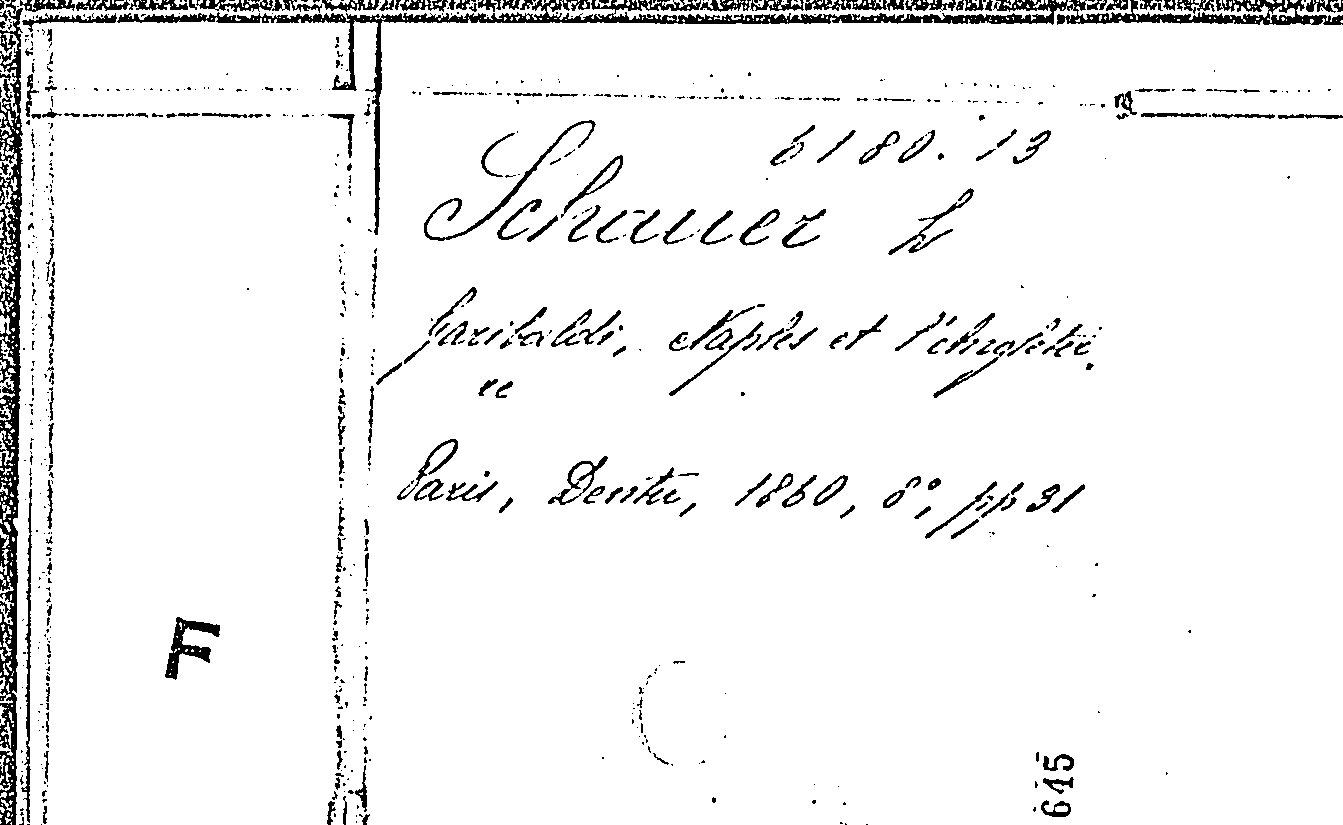 6180.13
Schauer L
Garibaldi, Naples et l'Angleter.
re
Paris, Dentu, 1860, 8°, pp 31
F
645